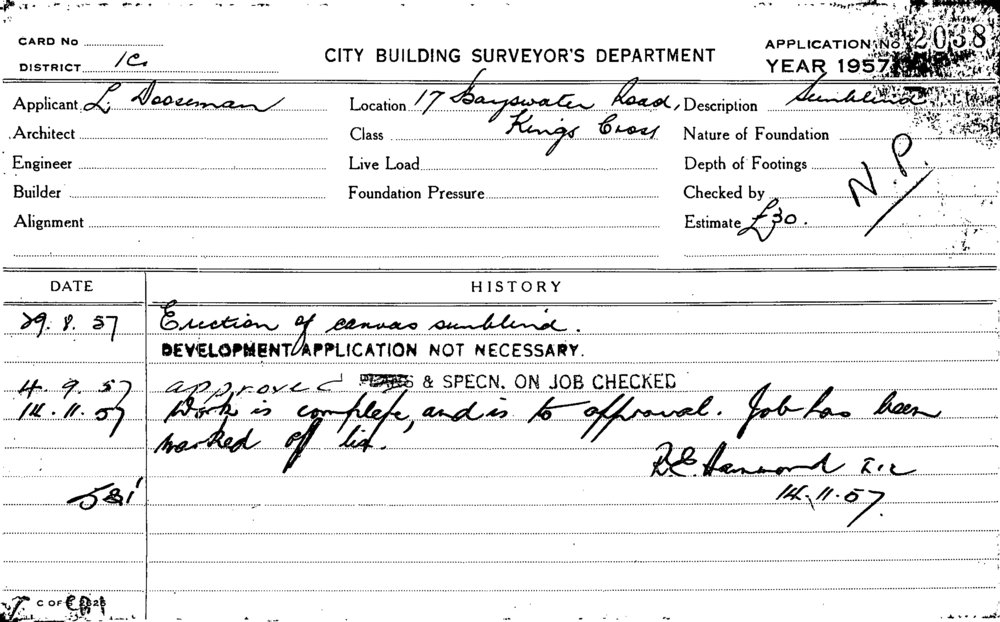 CARD No
APPLICATION No 2038
CITY BUILDING SURVEYOR'S DEPARTMENT
DISTRICT 1c.
YEAR 1957
Applicant L. Dooseman
Location 17 Bayswater Road,
Description Sunblind
Architect
Class Kings Cross
Nature of Foundation
Engineer
Live Load
Depth of Footings
Builder
Foundation Pressure
Checked by
N.P.
Alignment
Estimate £30.
DATE HISTORY
29.8.57 Erection of canvas sunblind.
DEVELOPMENT APPLICATION NOT NECESSARY.
4.9.57 approved & SPECN. ON JOB CHECKED
14.11.57 Work is complete, and is to approval. Job has been
marked off list.
R.E. Hammond
14.11.57.
C OF